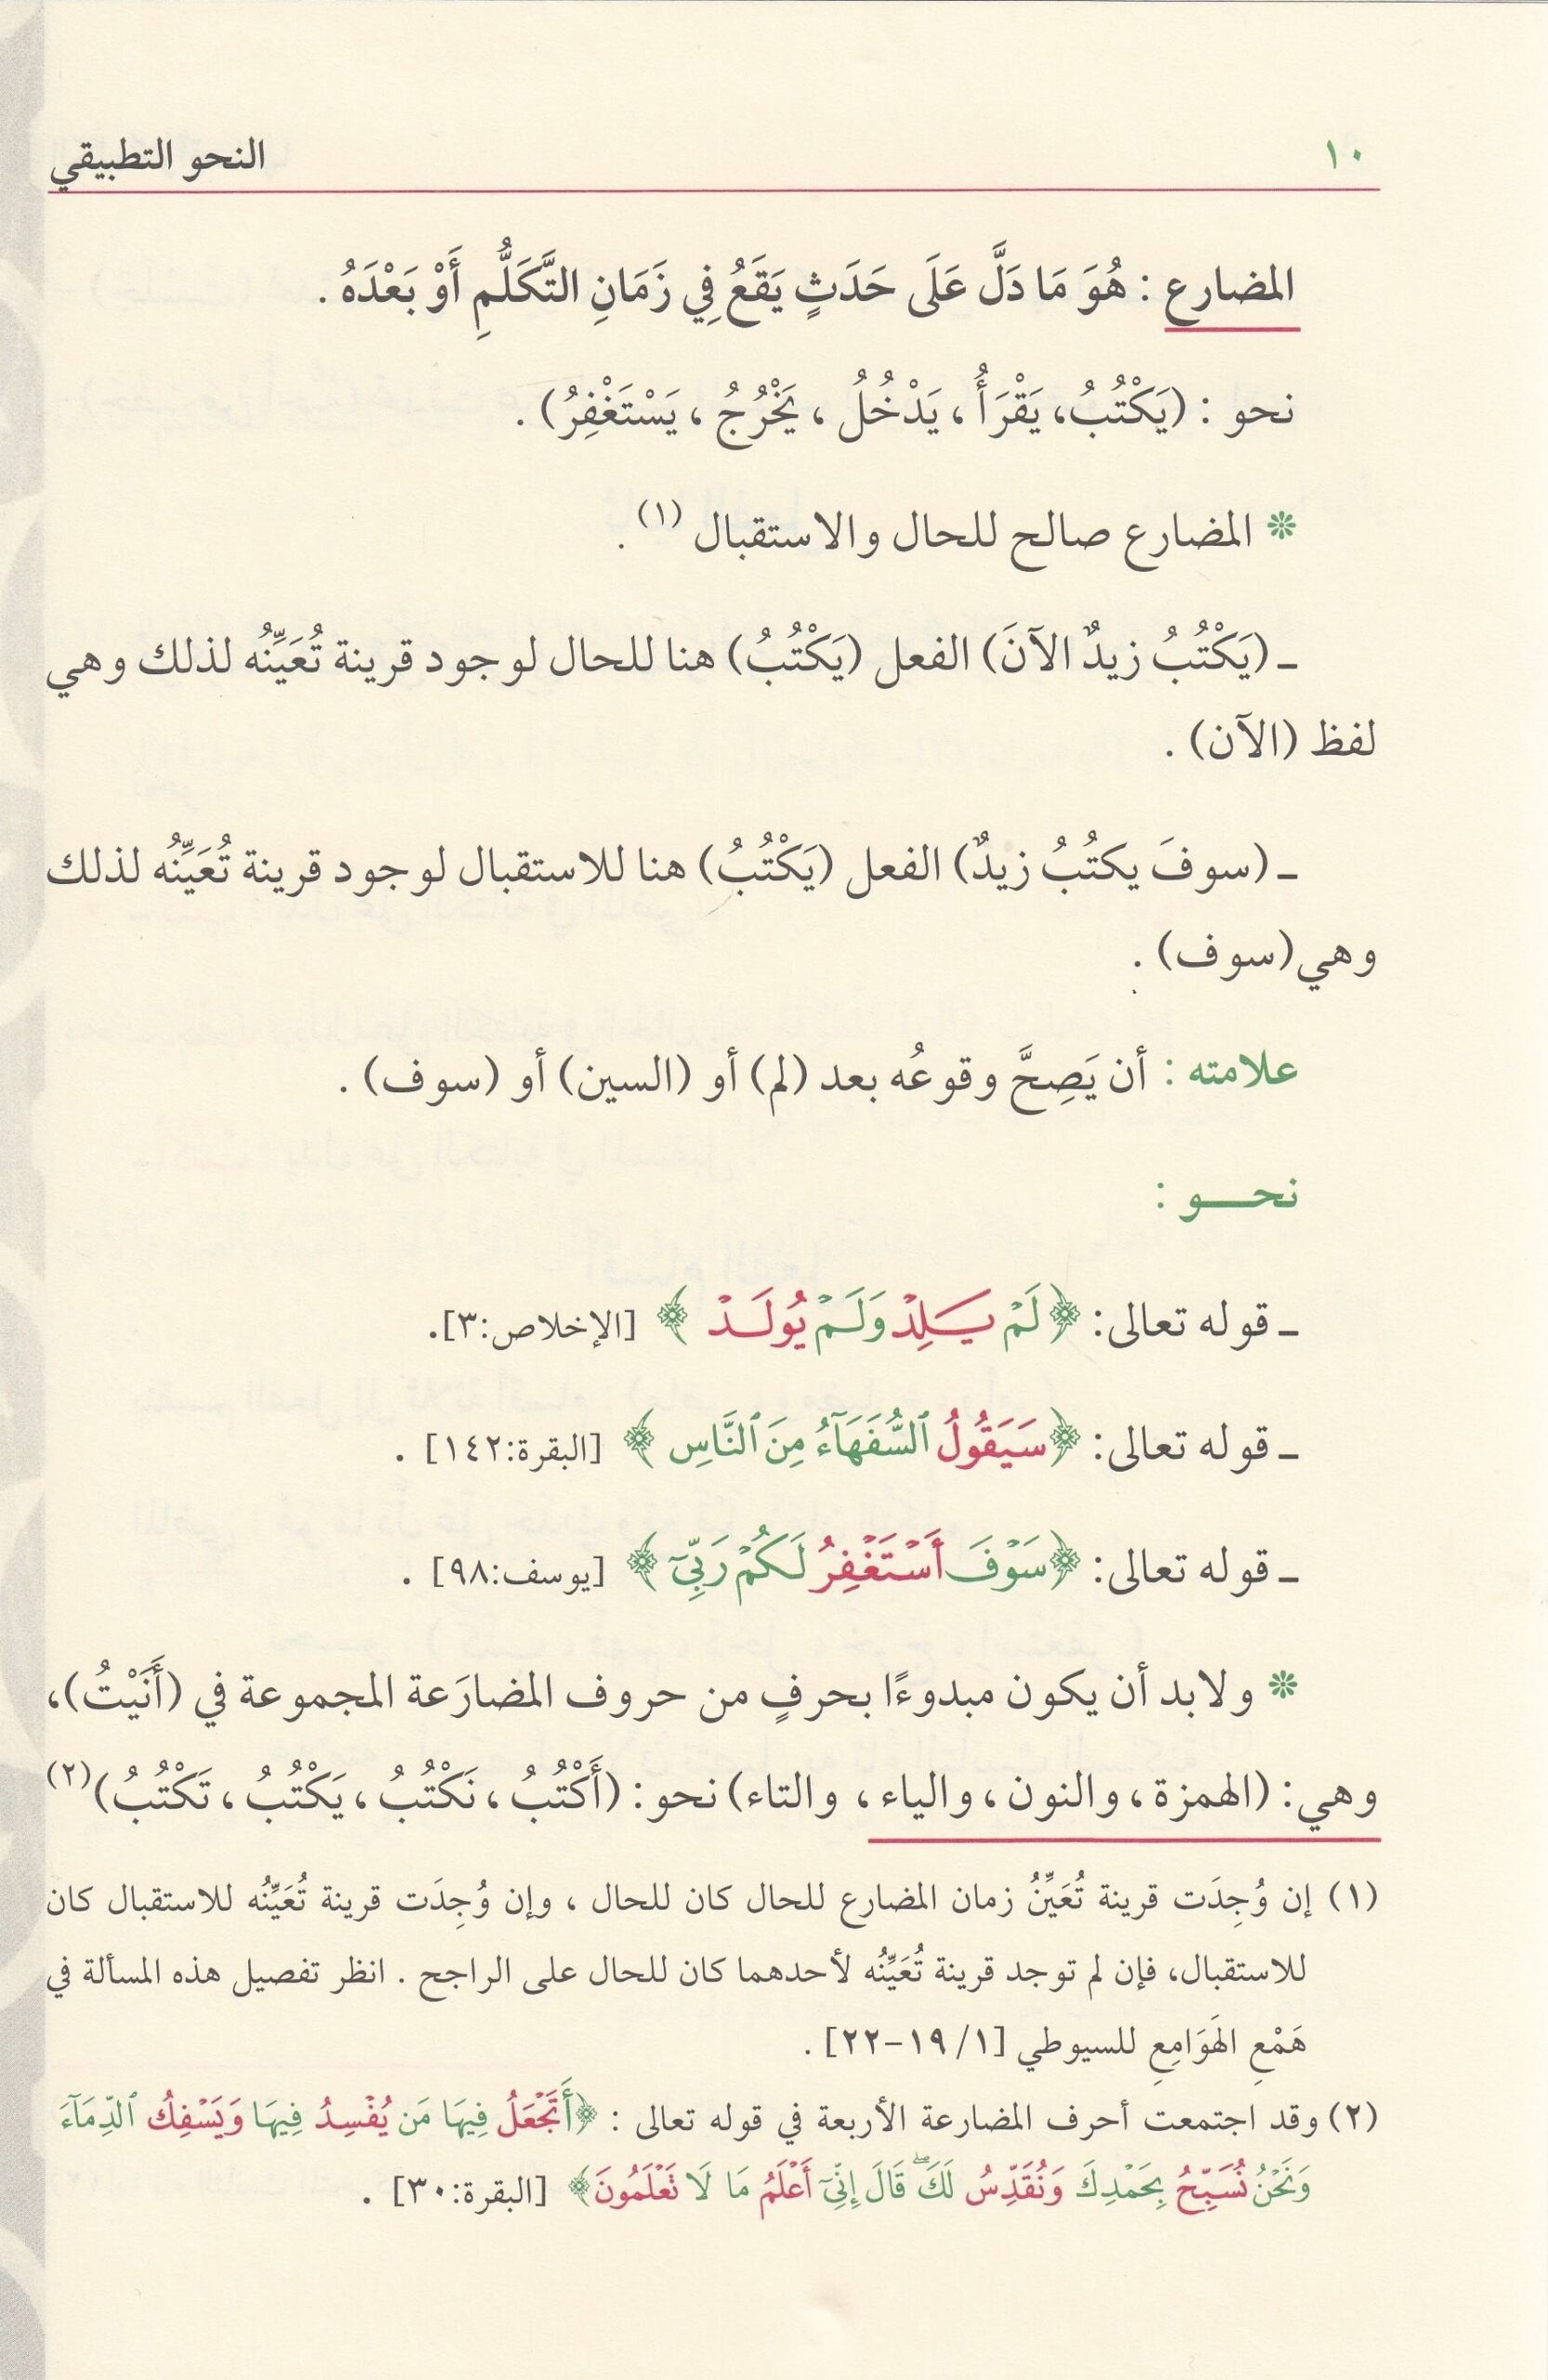 ١٠
النحو التطبيقي
المضارع : هُوَ مَا دَلَّ عَلَى حَدَثٍ يَقَعُ فِي زَمَانِ التَّكَلُّمِ أَوْ بَعْدَهُ .
نحو : (يَكْتُبُ، يَقْرَأُ ، يَدْخُلُ ، يَخْرُجُ ، يَسْتَغْفِرُ) .
* المضارع صالح للحال والاستقبال (١) .
ـ (يَكْتُبُ زيدٌ الآنَ) الفعل (يَكْتُبُ) هنا للحال لوجود قرينة تُعَيِّنُه لذلك وهي
لفظ (الآن) .
ـ (سوفَ يكتُبُ زيدٌ) الفعل (يَكْتُبُ) هنا للاستقبال لوجود قرينة تُعَيِّنُه لذلك
وهي (سوف) .
علامته : أن يَصِحَّ وقوعُه بعد (لم) أو (السين) أو (سوف) .
نحـــو :
ـ قوله تعالى: ﴿لَمْ يَـلِدْ وَلَـمْ يُولَـدْ ﴾ [الإخلاص:٣].
ـ قوله تعالى: ﴿سَيَقُولُ ٱلسُّفَهَآءُ مِنَ ٱلنَّاسِ ﴾ [البقرة:١٤٢] .
ـ قوله تعالى: ﴿سَوْفَ أَسْتَغْفِرُ لَكُمْ رَبِّيٓ ﴾ [يوسف:٩٨] .
* ولابد أن يكون مبدوءًا بحرفٍ من حروف المضارَعة المجموعة في (أَنَيْتُ)،
وهي: (الهمزة ، والنون ، والياء ، والتاء) نحو: (أَكْتُبُ ، نَكْتُبُ ، يَكْتُبُ ، تَكْتُبُ)(٢)
(١) إن وُجِدَت قرينة تُعَيِّنُ زمان المضارع للحال كان للحال ، وإن وُجِدَت قرينة تُعَيِّنُه للاستقبال كان
للاستقبال، فإن لم توجد قرينة تُعَيِّنُه لأحدهما كان للحال على الراجح . انظر تفصيل هذه المسألة في
هَمْعِ الهَوَامِعِ للسيوطي [١/ ١٩-٢٢] .
(٢) وقد اجتمعت أحرف المضارعة الأربعة في قوله تعالى : ﴿أَتَجْعَلُ فِيهَا مَن يُفْسِدُ فِيهَا وَيَسْفِكُ ٱلدِّمَآءَ
وَنَحْنُ نُسَبِّحُ بِحَمْدِكَ وَنُقَدِّسُ لَكَۖ قَالَ إِنِّيٓ أَعْلَمُ مَا لَا تَعْلَمُونَ﴾ [البقرة:٣٠] .